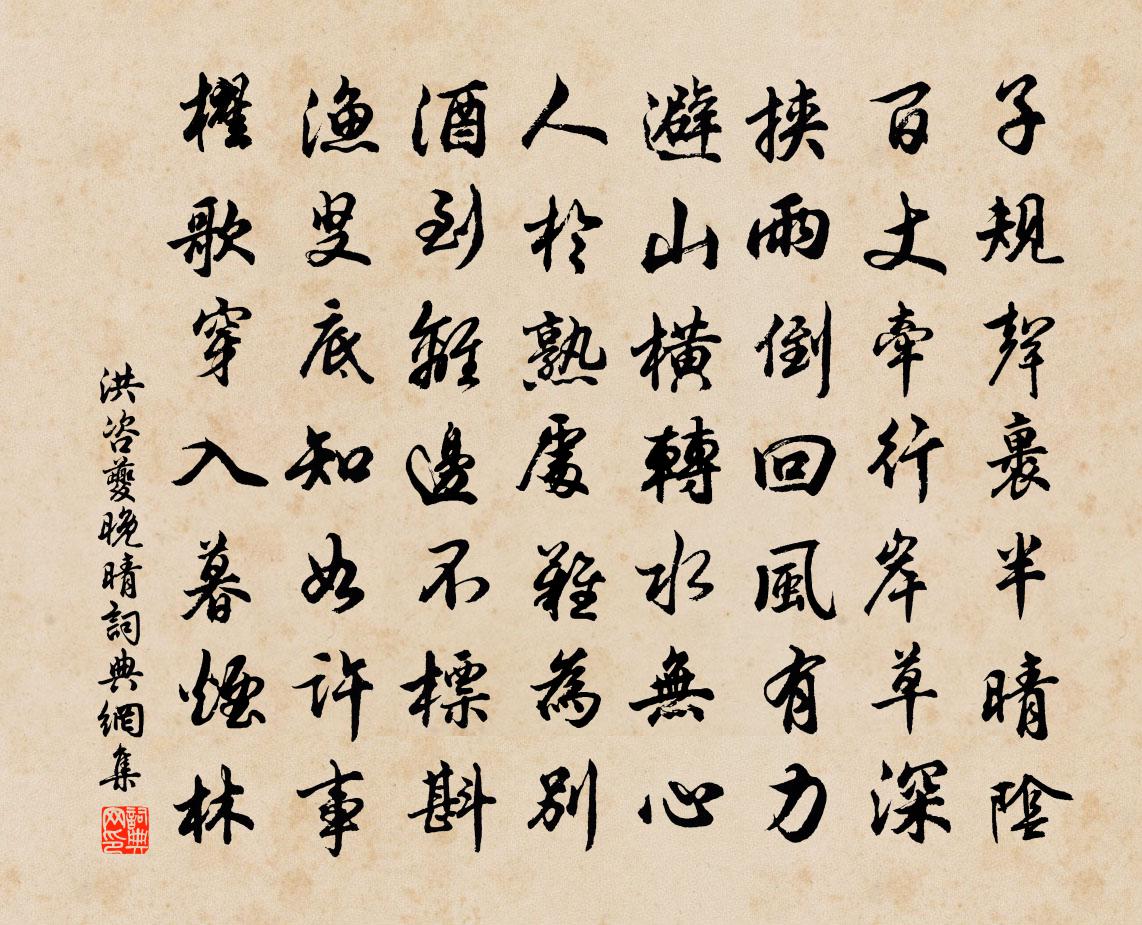 子規聲裏半晴陰
百丈牽行岸草深
挾雨倒回風有力
避山橫轉水無心
人於熟處難為別
酒到離邊不標斟
漁叟底知如許事
櫂歌穿入暮煙林
洪咨夔晚晴詞典網集
詞典网印